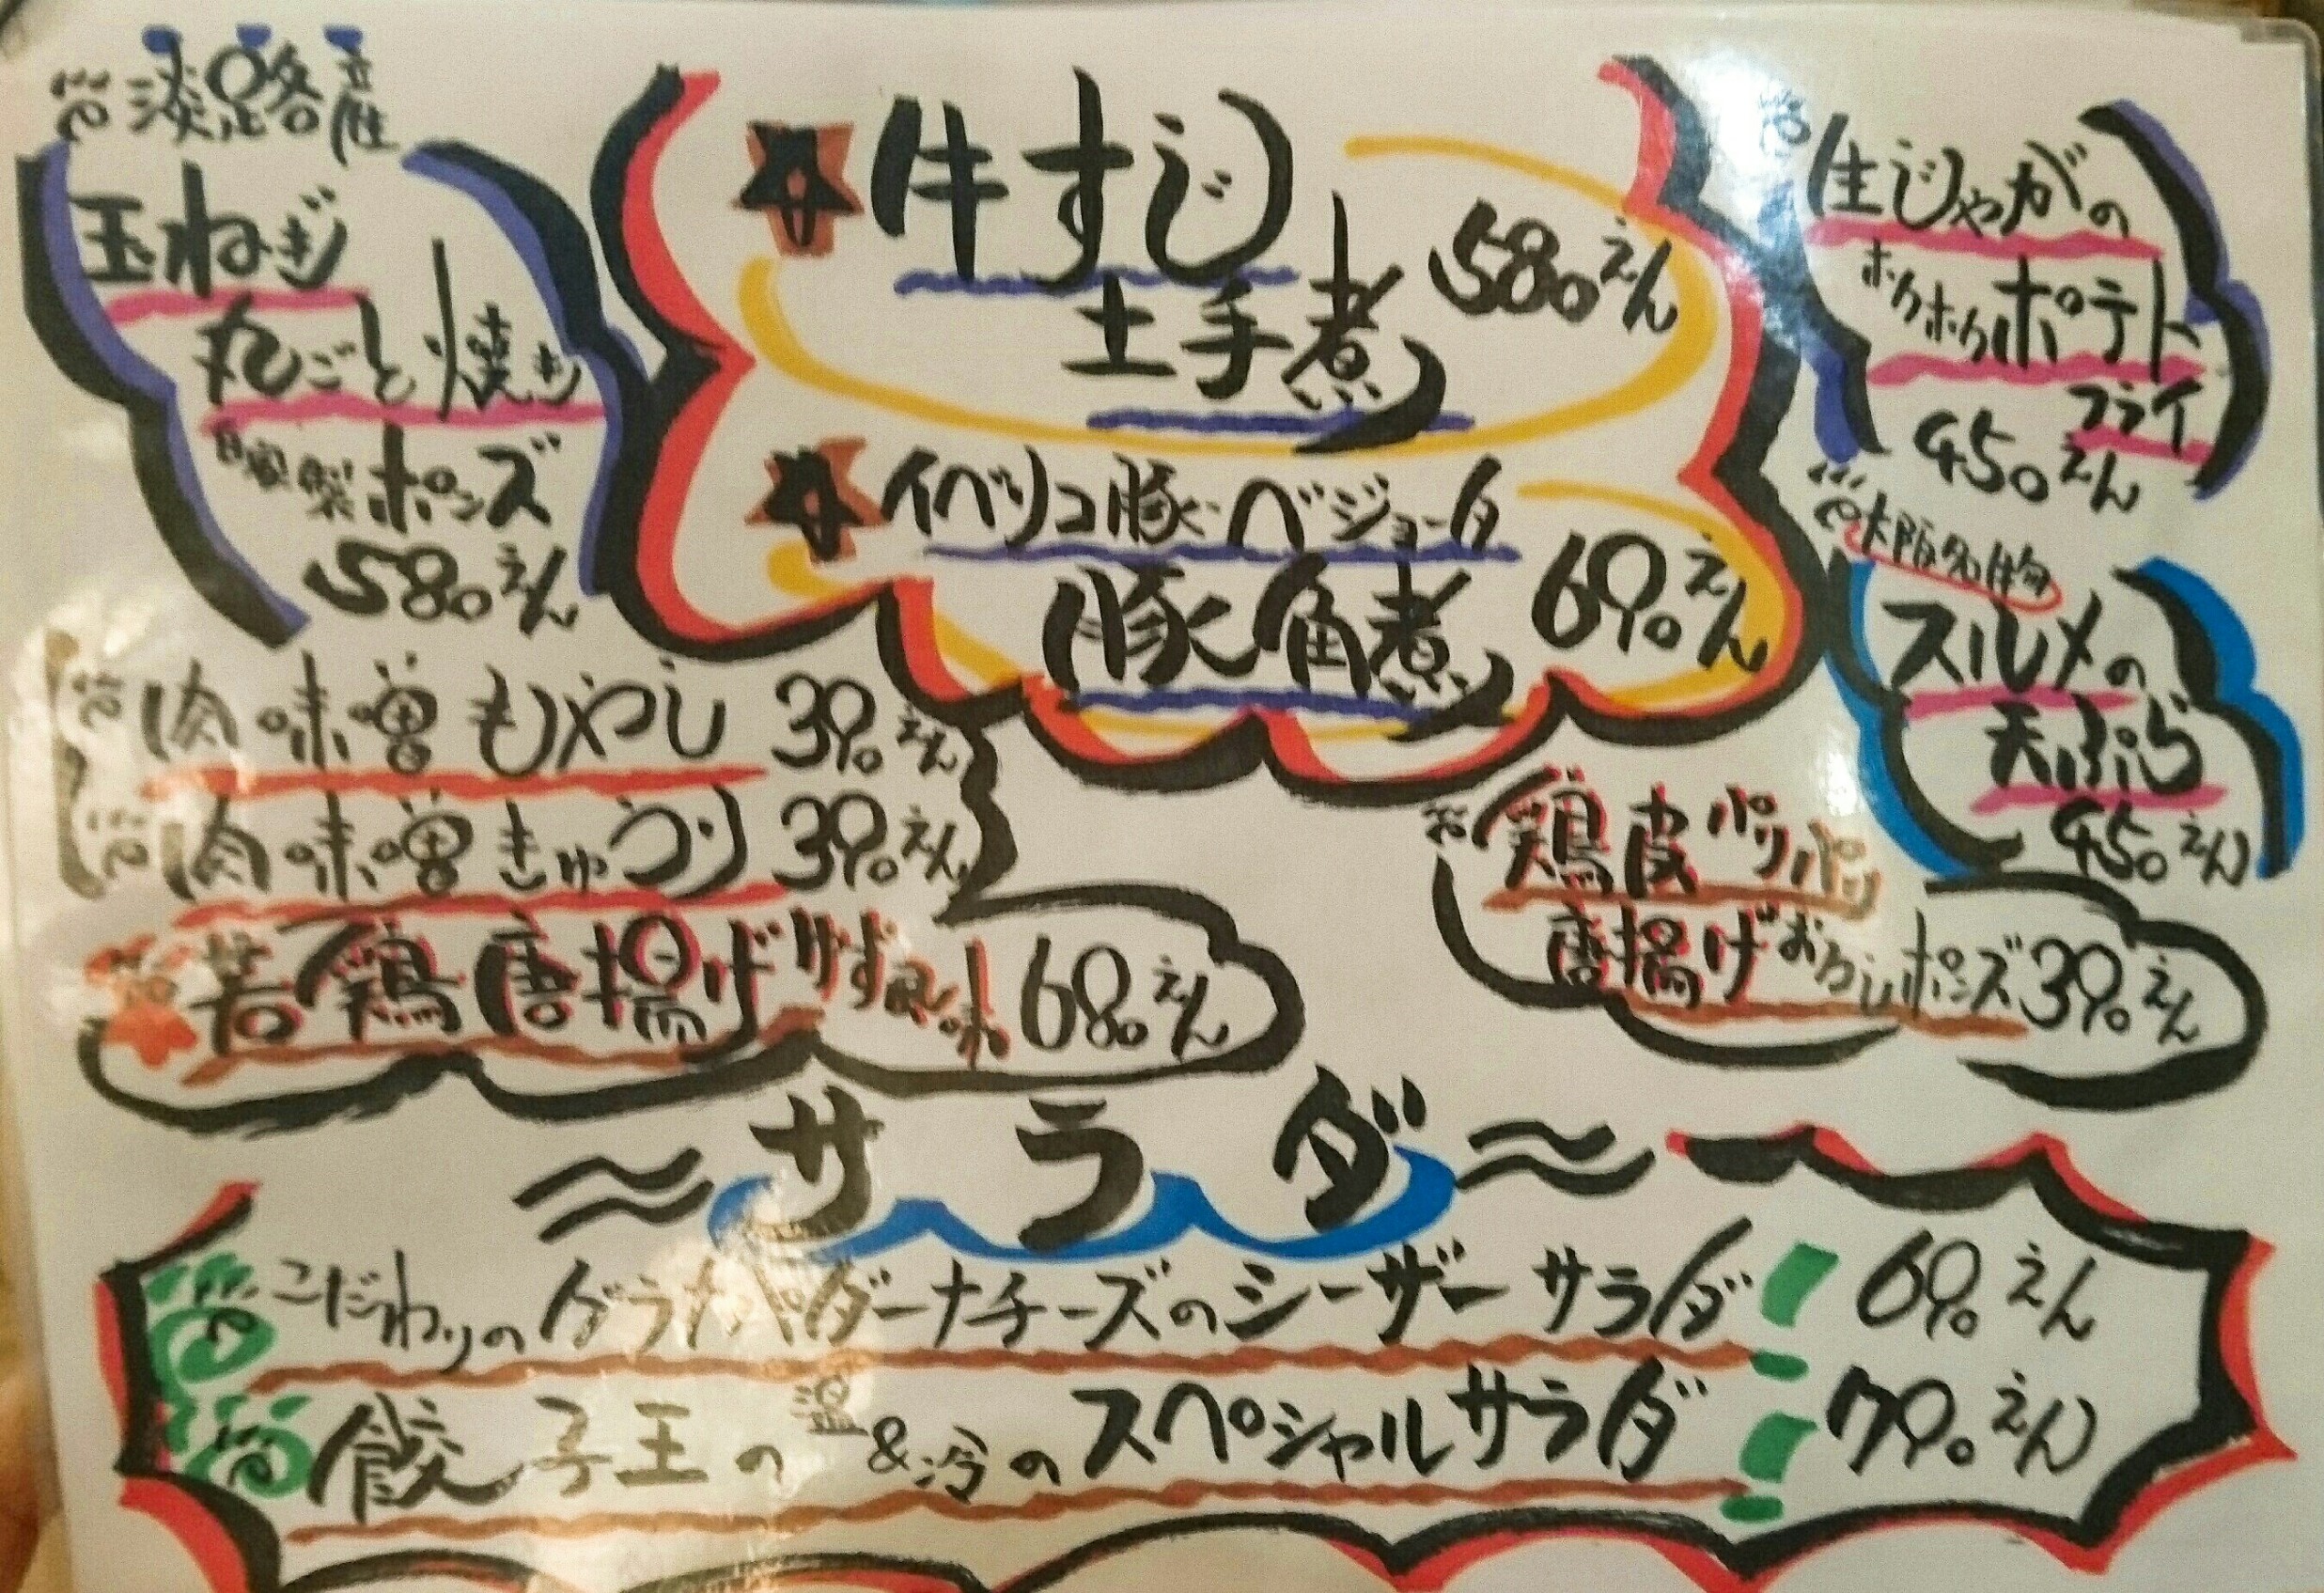 淡路産
玉ねぎ
丸ごと焼き
自家製ポンズ
580えん
牛すじ
土手煮
580えん
イベリコ豚ベジョータ
豚角煮
690えん
生じゃがの
ホクホクポテト
フライ
450えん
大阪名物
スルメの
天ぷら
450えん
肉味噌もやし 390えん
肉味噌きゅうり 390えん
若鶏唐揚げ ゆず風味 680えん
鶏皮パリパリ
唐揚げおろしポンズ 390えん
サラダ
こだわりのグラナパダーナチーズのシーザーサラダ 690えん
餃子王の温&冷のスペシャルサラダ 790えん